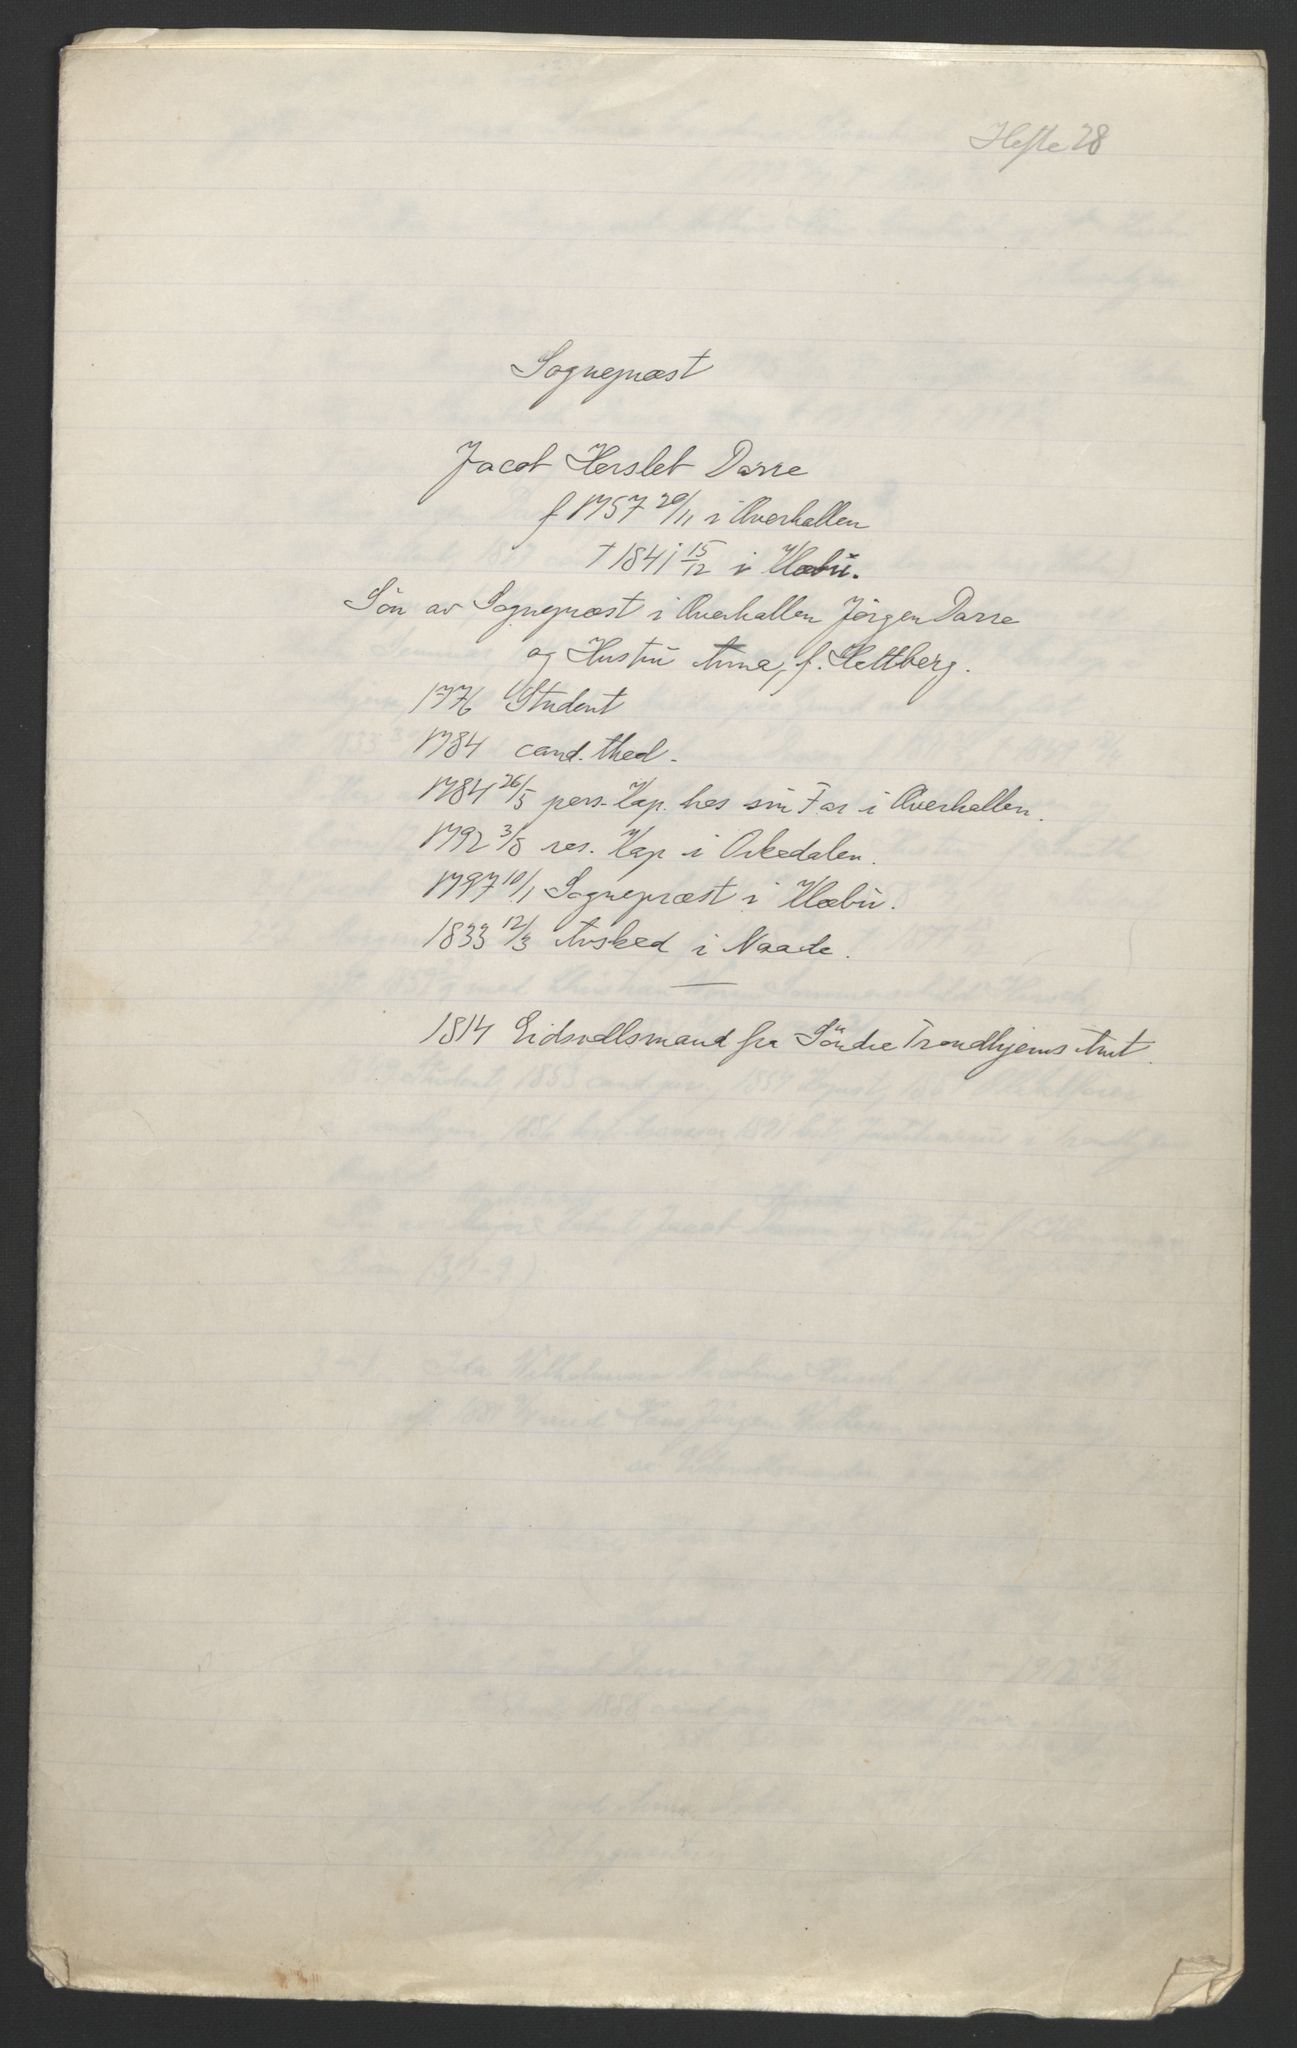 Hefte 28
Sognepræst
Jacob Hersleb Darre
f 1757 20/11 i Overhallen
† 1841 15/12 i Klæbu.
Sön av Sognepræst i Overhallen Jörgen Darre
og Hustru Anna, f. Heltberg.
1776 Student
1784 cand. theol.
1784 26/5 pers. Kap. hos sin Far i Overhallen.
1792 3/8 res. Kap i Orkedalen.
1797 10/1 Sognepræst i Klæbu.
1833 12/3 Avsked i Naade.
1814 Eidsvollsmand fra Söndre Trondhjems Amt.